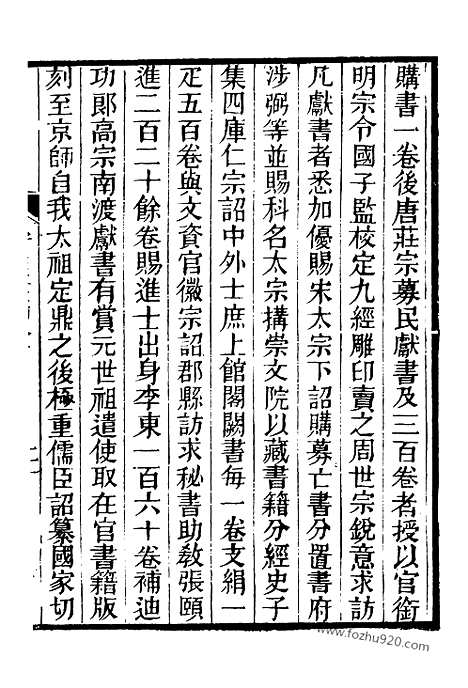 購書一卷後唐莊宗募民獻書及三百卷者授以官銜
明宗令國子監核定九經雕印賣之周世宗銳意求訪
凡獻書者悉加優賜宋太宗下詔購募亡書分置書府
涉弼等並賜科名太宗搆崇文院以藏書籍分經史子
集四庫仁宗詔中外士庶上館閣闕書每一卷支絹一
疋五百卷與文資官徽宗詔郡縣訪求秘書助敎張頤
進二百二十餘卷賜進士出身李東一百六十卷補迪
功郞高宗南渡獻書有賞元世祖遣使取在官書籍版
刻至京師自我太祖定鼎之後極重儒臣詔纂國家切
www.fozhu920.com